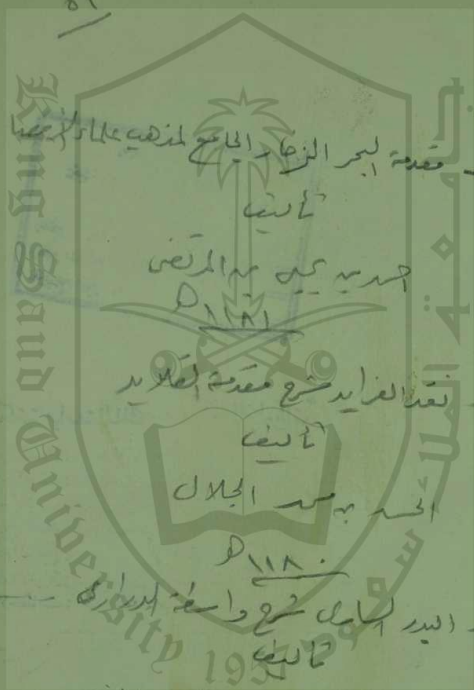 ٥٦
- مقدمة البحر الزخار الجامع لمذهب علماء الأمصا
تأليف
احمد بن يحيى بن المرتضى
١١٨١ ه
نقد الفرايد شرح مقدمة القلايد
تأليف
الحسن بن احمد الجلال
١١٨٠ ه
- البدر الساري شرح واسطة الدراري
تأليف
King Saud University 1957
جامعة الملك سعود